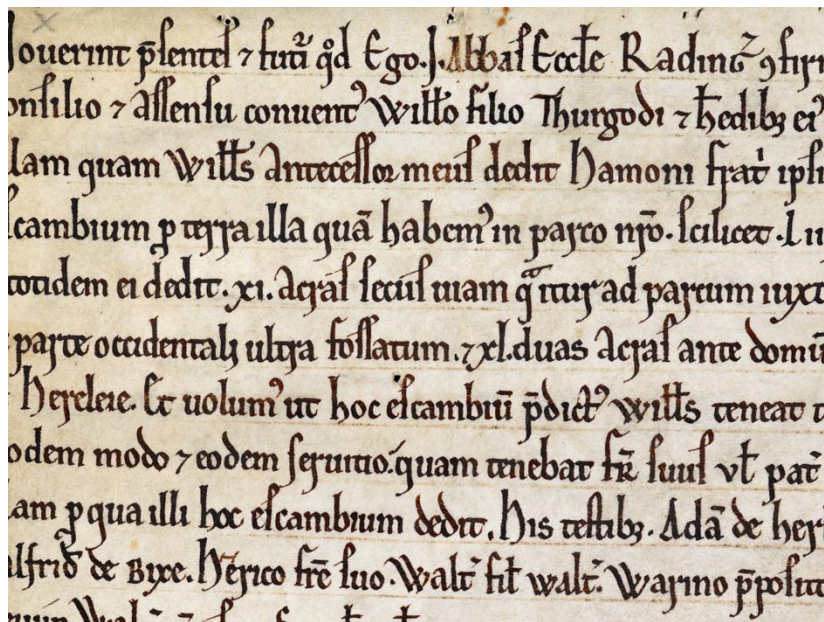 ouerint p̄sentes ⁊ futꝰi qd̄ Ego.J. Abbas Eccłe Rading̃ ꝯfirm
onsilio ⁊ assensu conuentꝰ Wiłło filio Thurgodi ⁊ ħedibꝫ eiꝰ
lam quam Wiłłs antecessor meus dedit Hamoni frat̃ ipsi
scambium ꝓ terra illa quā habemꝰ in parco nr̄o. scilicet.
totidem ei dedit. xi. acras secus uiam qͣ itur ad parcum iuxt
parte occidentalꝫ ultra fossatum. ⁊ xl. duas Acras ante domū
Hereleie. Et uolumꝰ ut hoc escambiū p̄dictꝰ wiłłs teneat
odem modo ⁊ eodem seruitio. quam tenebat fr̄ suus vł pat̃
am ꝓ qua illi hoc escambium dedit. His testibꝫ. Adā de her
alfrid̃ de Bixe. Hērico fr̄e suo. Walt̃ fił walt̃. Warino p̄posito